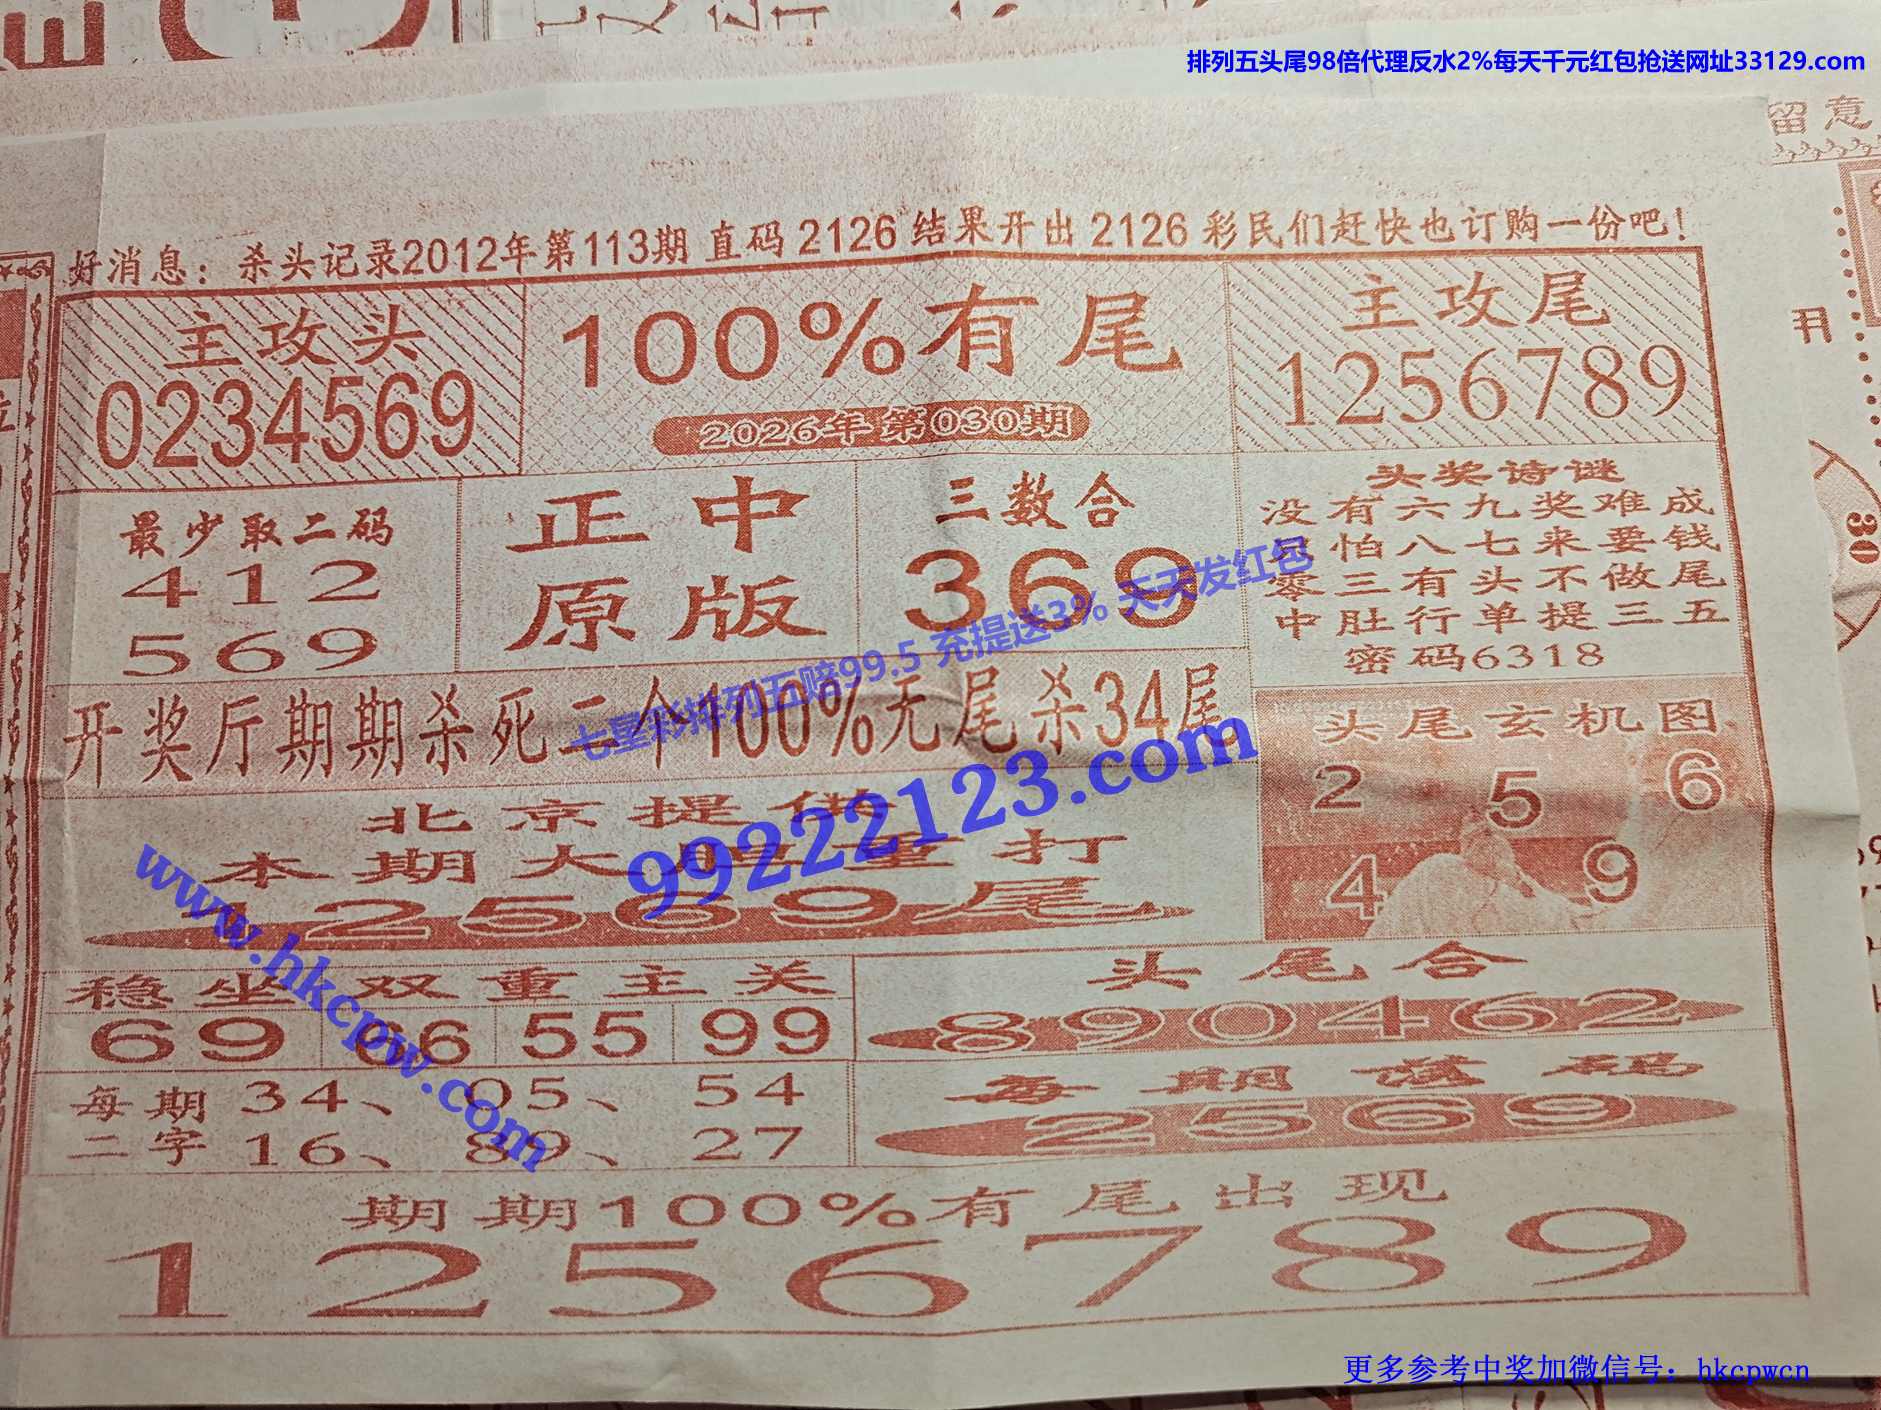 排列五头尾98倍代理反水2%每天千元红包抢送网址33129.com
留意
好消息：杀头记录2012年第113期 直码 2126 结果开出 2126 彩民们赶快也订购一份吧！
主攻头
0234569
100%有尾
2026年第030期
主攻尾
1256789
最少取二码
412
569
正中
原版
三数合
369
头奖诗谜
没有六九奖难成
怕八七来要钱
零三有头不做尾
中肚行单提三五
密码6318
七星彩排列五赔99.5 充提送3% 天天发红包
开奖厅期期杀死二个100%无尾杀34尾
头尾玄机图
2 5 6
4 9
北京提供
本期大胆重打
12569尾
99222123.com
www.hkcpw.com
稳坐双重主关
69 66 55 99
头尾合
890462
每期二字
34、05、54
16、89、27
每期落码
2569
期期100%有尾出现
1256789
30
更多参考中奖加微信号：hkcpwcn